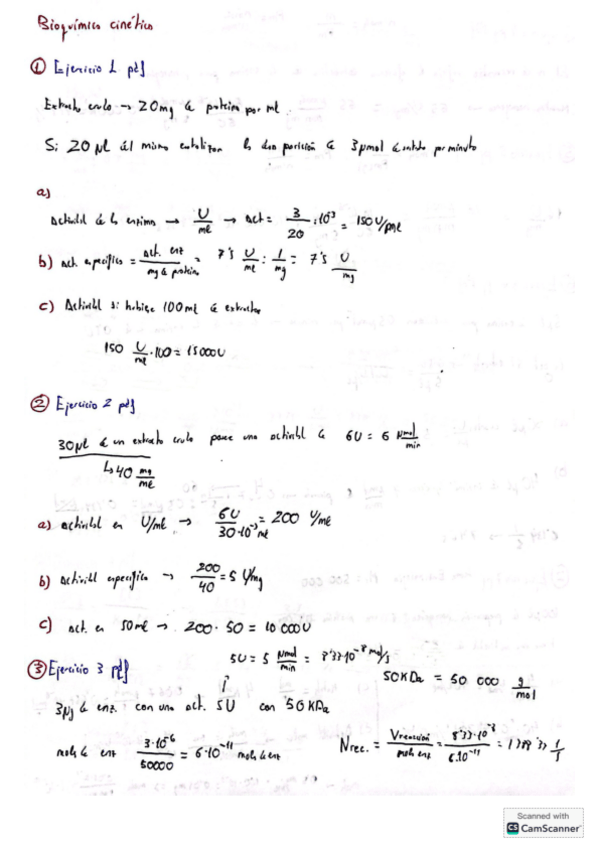 Bioquímica cinética
① Ejercicio 1 pdf
Extracto crudo → 20mg de proteína por ml.
Si 20 µl del mismo catalizan la desaparición de 3µmol de sustrato por minuto
a)
Actividad de la enzima → U/ml → Act = 3/20·10⁻³ = 150 U/ml
b) act. específica = act. enz/mg de proteína = 7'5 U/ml : 1/mg = 7'5 U/mg
c) Actividad si hubiese 100ml de extracto
150 U/ml · 100 = 15000U
② Ejercicio 2 pdf
30µl de un extracto crudo posee una actividad de 6U = 6 µmol/min
↳ 40 mg/ml
a) actividad en U/ml → 6U/30·10⁻³ ml = 200 U/ml
b) Actividad específica → 200/40 = 5 U/mg
c) act. en 50ml → 200 · 50 = 10 000U
③ Ejercicio 3 pdf
5U = 5 µmol/min = 8'33·10⁻⁸ mol/s
50KDa = 50 000 g/mol
3µg de enz. con una act. 5U con 50KDa
mols de enz 3·10⁻⁶/50000 = 6·10⁻¹¹ mols de enz
Nrec. = Vreacción/mols enz = 8'33·10⁻⁸/6·10⁻¹¹ =
Scanned with
CS CamScanner